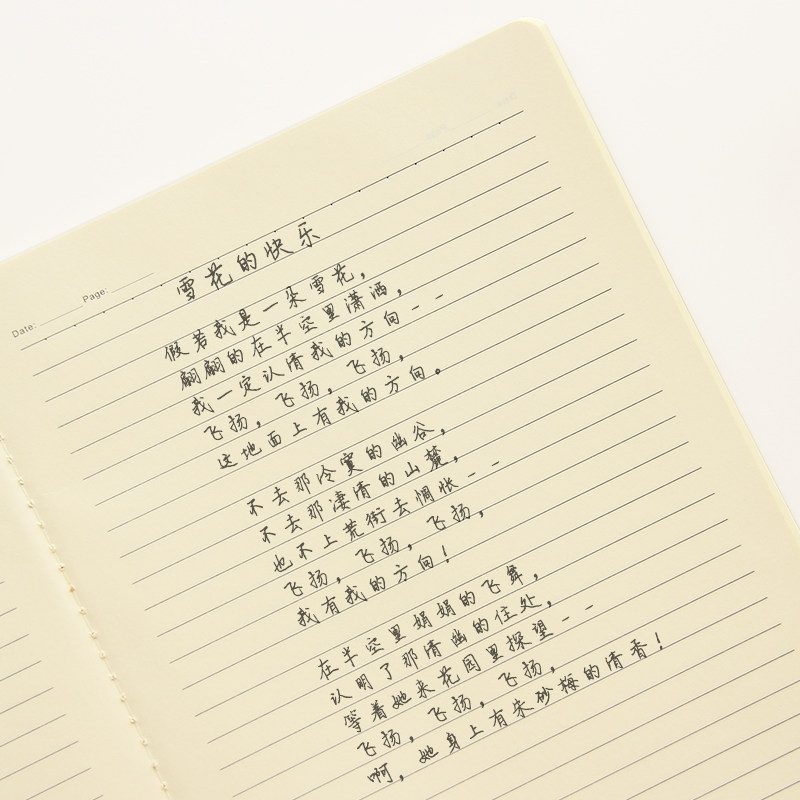 Date:
Page:
雪花的快乐
假若我是一朵雪花，
翩翩的在半空里潇洒，
我一定认清我的方向--
飞扬，飞扬，飞扬，
这地面上有我的方向。
不去那冷寞的幽谷，
不去那凄清的山麓，
也不上荒街去惆怅--
飞扬，飞扬，飞扬，
我有我的方向！
在半空里娟娟的飞舞，
认明了那清幽的住处，
等着她来花园里探望--
飞扬，飞扬，飞扬，
啊，她身上有朱砂梅的清香！